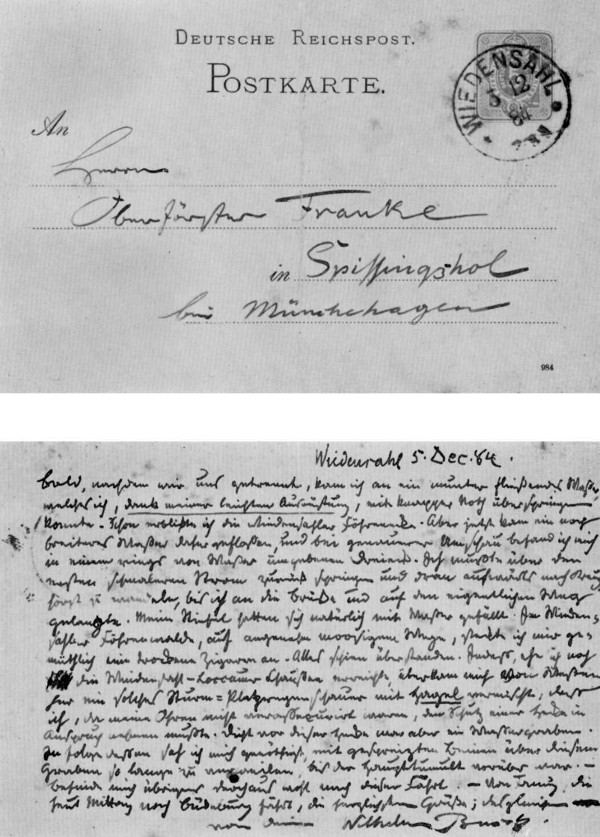 DEUTSCHE REICHSPOST.
POSTKARTE.
WIEDENSAHL
5 12
84
An
Herrn
Oberförster Franke
in Spissingshol
bei Münchehagen
984
Wiedensahl 5. Dec. 84.
Bald, nachdem wir uns getrennt, kam ich an ein munter fließendes Wasser
welches ich, dank meiner leichten Ausrüstung, mit knapper Noth überspringen
konnte. Schon erblickte ich die Wiedensahler Föhrenecke. Aber jetzt kam ein noch
breiteres Wasser daher gefloßen, und bei genauerer Umschau befand ich mich
in einem rings von Wasser umgebenen Dreieck. Ich mußte über den
ersten schmaleren Strom zurück springen und dran aufwärts nach
zu wandeln, bis ich an die Brücke und auf den eigentlichen Weg
gelangte. Meine Stiefel hatten sich natürlich mit Wasser gefüllt. Im Wieden-
sahler Föhrenwalde, auf angenehm moosigem Wege, steckte ich mir ge-
müthlich eine trockene Zigarre an. Alles schien überstanden. Indeß, ehe ich noch
die Wiedensahl-Loccumer Chaussee erreichte, überkam mich von Westen
her ein solches Sturm=Platzregenschauer mit Hagel vermischt, daß
ich, da meine Ohren nicht waren, den Schutz einer Hecke in
Anspruch nehmen mußte. Dicht vor dieser Hecke war aber ein Wassergraben.
In Folge dessen sah ich mich genöthigt, mit gespreizten Beinen über diesem
Graben so lange zu verweilen, bis der Haupttumult vorüber war. –
Befinde mich übrigens durchaus wohl nach dieser Fahrt. – Von Fanny, die
heut Mittag nach Bückeburg fährt, die herzlichsten Grüße; desgleichen
von deinem Wilhelm Busch.